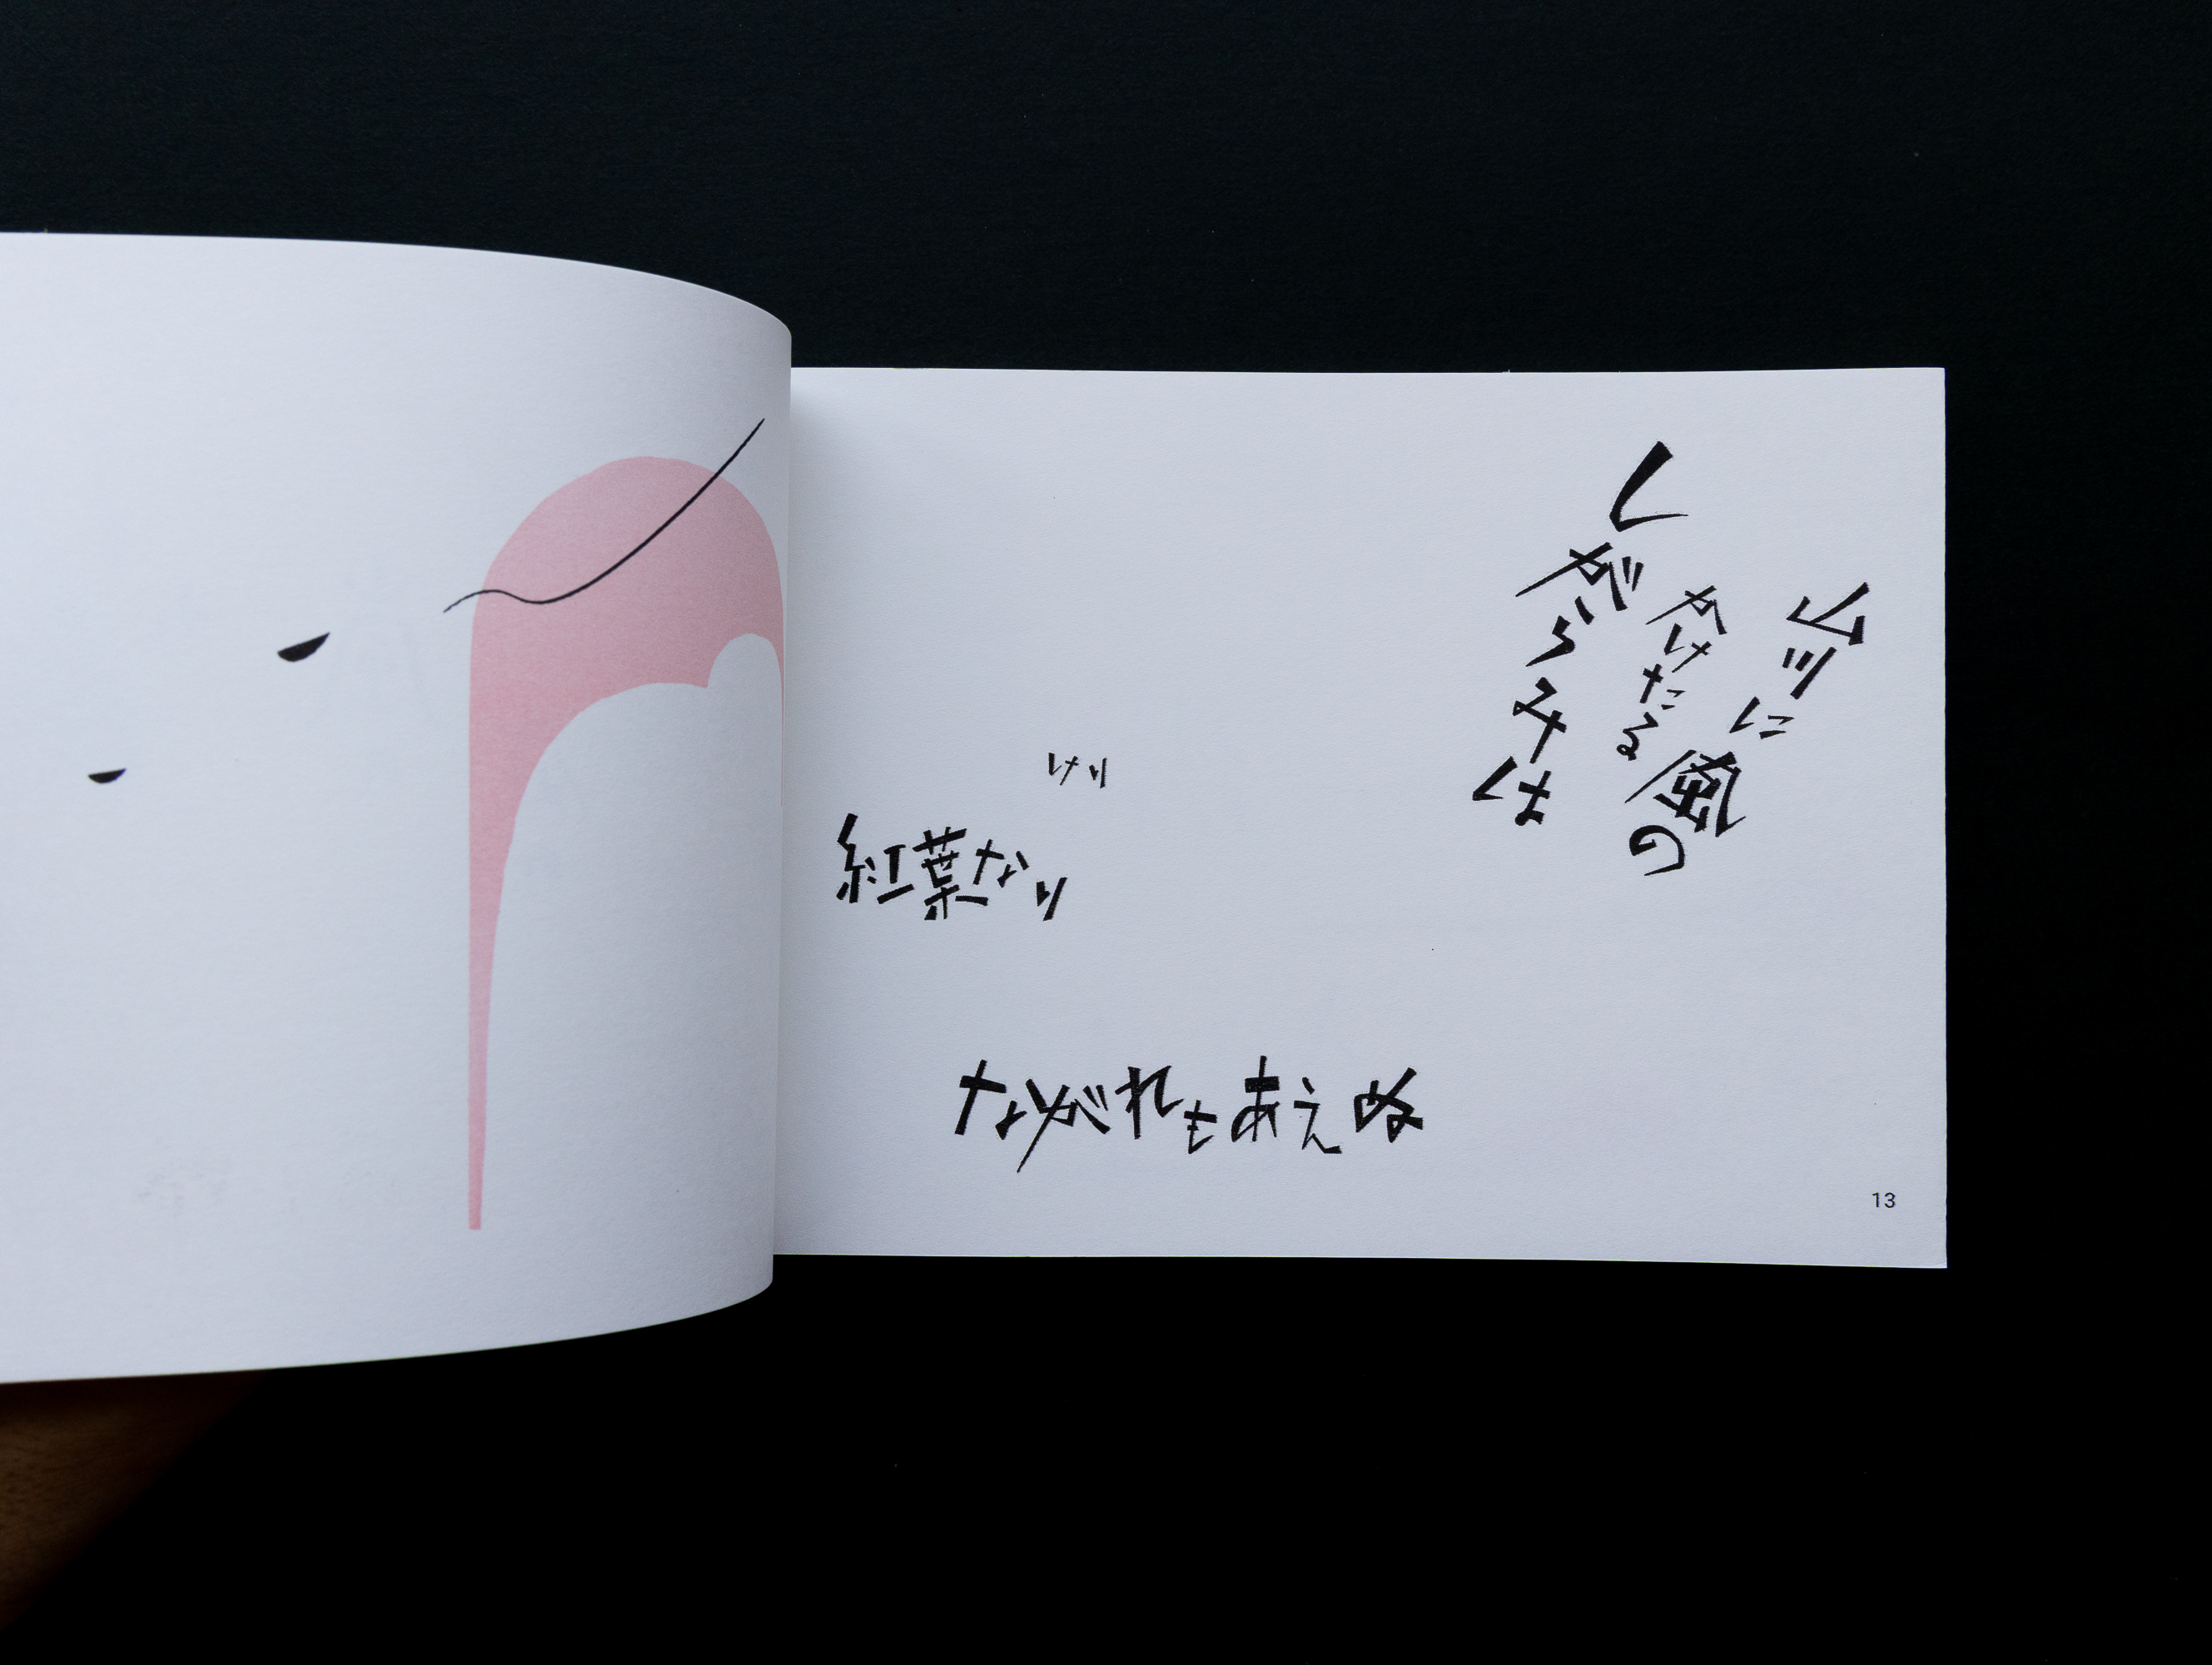 山川に
風の
かけたる
しがらみは
ながれもあえぬ
紅葉なり
けり
13